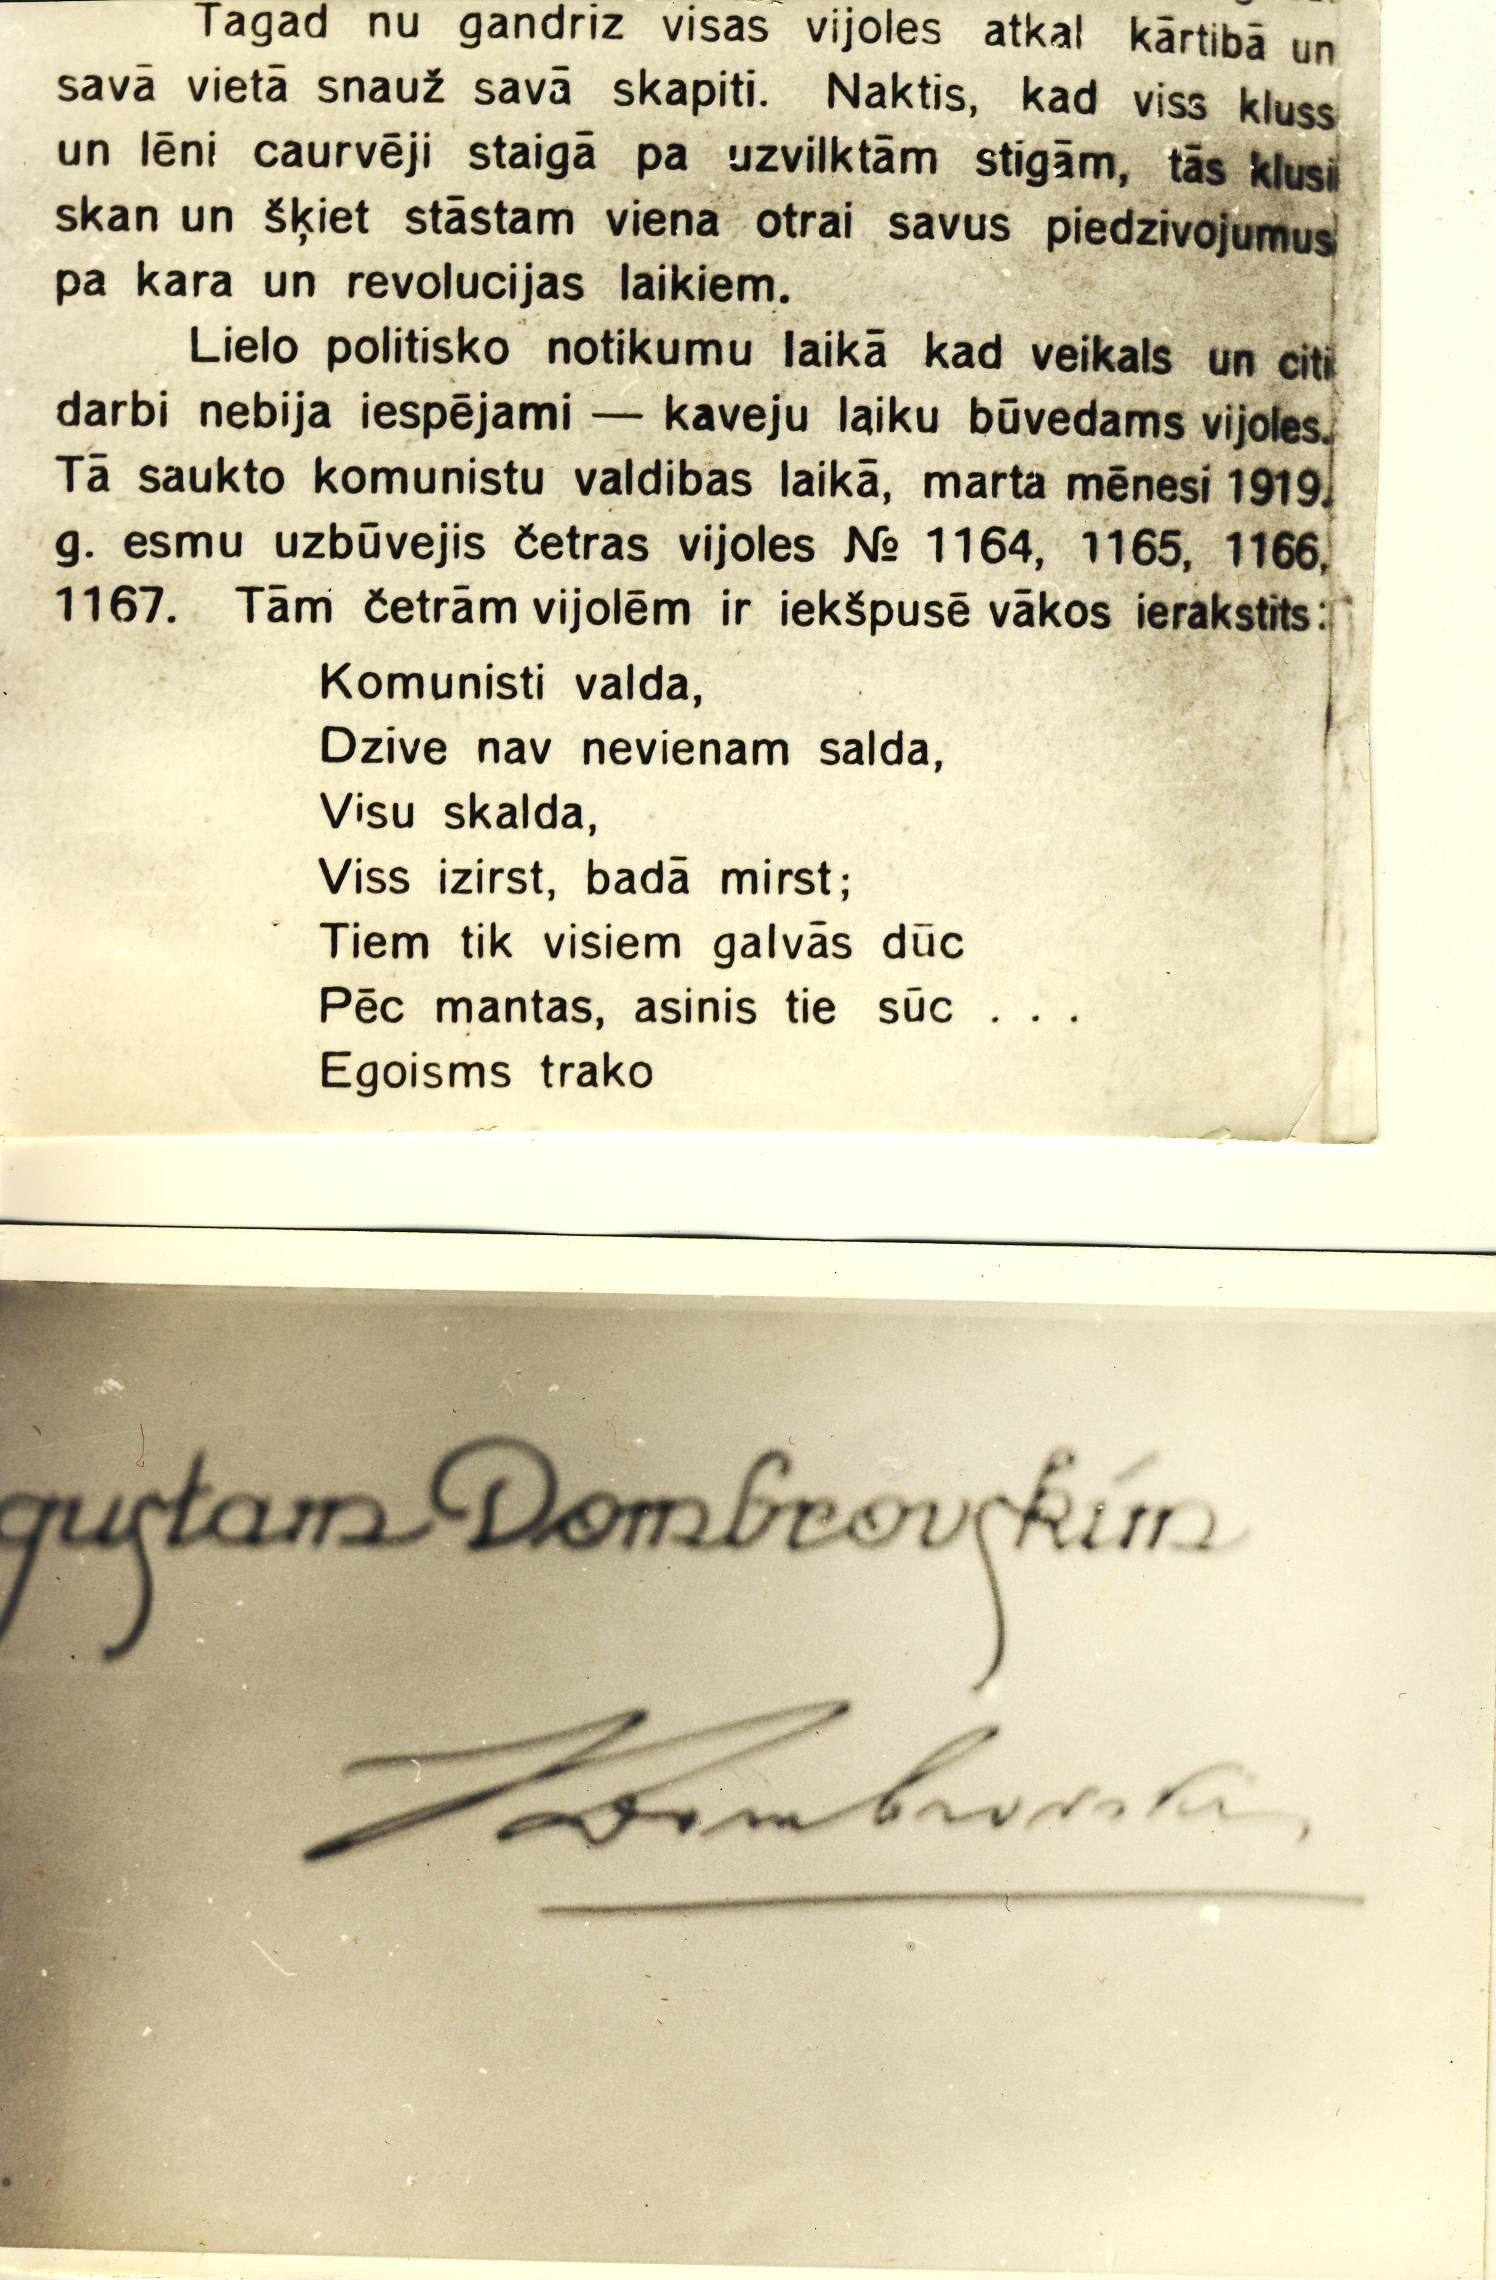 Tagad nu gandriz visas vijoles atkal kārtibā un
savā vietā snauž savā skapiti. Naktis, kad viss kluss
un lēni caurvēji staigā pa uzvilktām stigām, tās klusi
skan un šķiet stāstam viena otrai savus piedzivojumus
pa kara un revolucijas laikiem.
Lielo politisko notikumu laikā kad veikals un citi
darbi nebija iespējami — kaveju laiku būvedams vijoles.
Tā saukto komunistu valdibas laikā, marta mēnesi 1919.
g. esmu uzbūvejis četras vijoles № 1164, 1165, 1166,
1167. Tām četrām vijolēm ir iekšpusē vākos ierakstits:
Komunisti valda,
Dzive nav nevienam salda,
Visu skalda,
Viss izirst, badā mirst;
Tiem tik visiem galvās dūc
Pēc mantas, asinis tie sūc . . .
Egoisms trako
gustam Dombrovskim
Dombrovskis